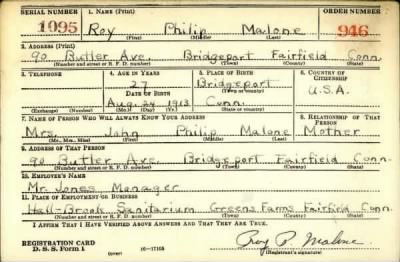 SERIAL NUMBER 1. NAME (Print) ORDER NUMBER
1095 Roy Philip Malone 946
(First) (Middle) (Last)
2. ADDRESS (Print)
90 Butler Ave. Bridgeport Fairfield Conn.
(Number and street or R. F. D. number) (Town) (County) (State)
3. TELEPHONE 4. AGE IN YEARS 5. PLACE OF BIRTH 6. COUNTRY OF CITIZENSHIP
27 Bridgeport
DATE OF BIRTH (Town or county) U.S.A.
Aug. 24 1913 Conn.
(Exchange) (Number) (Mo.) (Day) (Yr.) (State or country)
7. NAME OF PERSON WHO WILL ALWAYS KNOW YOUR ADDRESS 8. RELATIONSHIP OF THAT PERSON
Mrs. John Philip Malone Mother
(Mr., Mrs., Miss) (First) (Middle) (Last)
9. ADDRESS OF THAT PERSON
90 Butler Ave. Bridgeport Fairfield Conn.
(Number and street or R. F. D. number) (Town) (County) (State)
10. EMPLOYER'S NAME
Mr. Jones Manager
11. PLACE OF EMPLOYMENT OR BUSINESS
Hall-Brook Sanitarium Greens Farms Fairfield Conn.
(Number and street or R. F. D. number) (Town) (County) (State)
I AFFIRM THAT I HAVE VERIFIED ABOVE ANSWERS AND THAT THEY ARE TRUE.
REGISTRATION CARD
D. S. S. Form 1 (over) Roy P. Malone
(Registrant's signature)